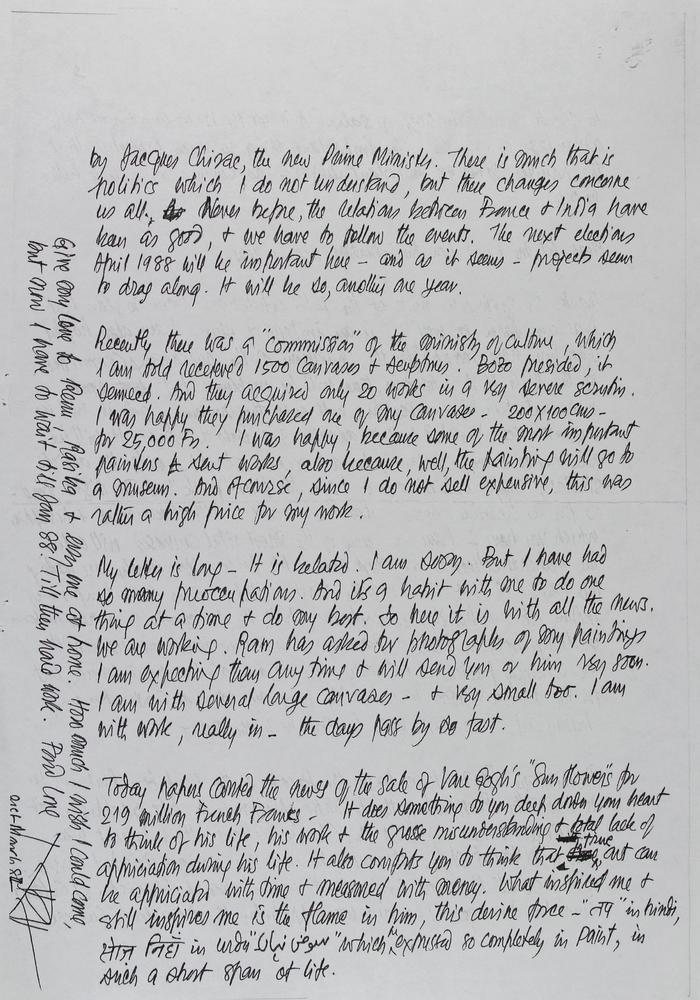 by Jacques Chirac, the new Prime Minister. There is much that is
politics which I do not understand, but these changes concerne
us all, Never before, the relations between France & India have
been as good, & we have to follow the events. The next elections
April 1988 will be important here – and as it seems – projects seem
to drag along. It will be so, another one year.
Recently there was a "commission" of the ministry of culture, which
I am told receieved 1500 Canvases & sculptures. Bozo presided, it
seemed. And they acquired only 20 works in a very severe scrutin.
I was happy they purchased one of my canvases - 200x100cms -
for 25,000 Frs. I was happy, because some of the most important
painters sent works, also because, well, the painting will go to
a museum. And ofcourse, since I do not sell expensive, this was
rather a high price for my work.
My letter is long – It is belated. I am sorry. But I have had
so many preoccupations. And its a habit with me to do one
thing at a time & do my best. So here it is with all the news.
We are working. Ram has asked for photographs of my paintings
I am expecting them any time & will send you or him very soon.
I am with several large canvases - & very small too. I am
with work, really in - the days pass by so fast.
Today papers carried the news of the sale of Van Gogh's "Sun flowers" for
219 million French Franks - It does something to you deep down your heart
to think of his life, his work & the grosse misunderstanding & total lack of
appriciation during his life. It also corrupts you to think that true art can
be appriciated with time & measured with money. What inspired me &
still inspires me is the flame in him, this devine force – "तप" in hindi,
in urdu "which he expressed so completely in Paint, in
such a short span of life.
Give my love to Renu, Raisha & every one at home. How much I wish I could come,
but now I have to wait till Jan 88! Till then hard work. Fond love